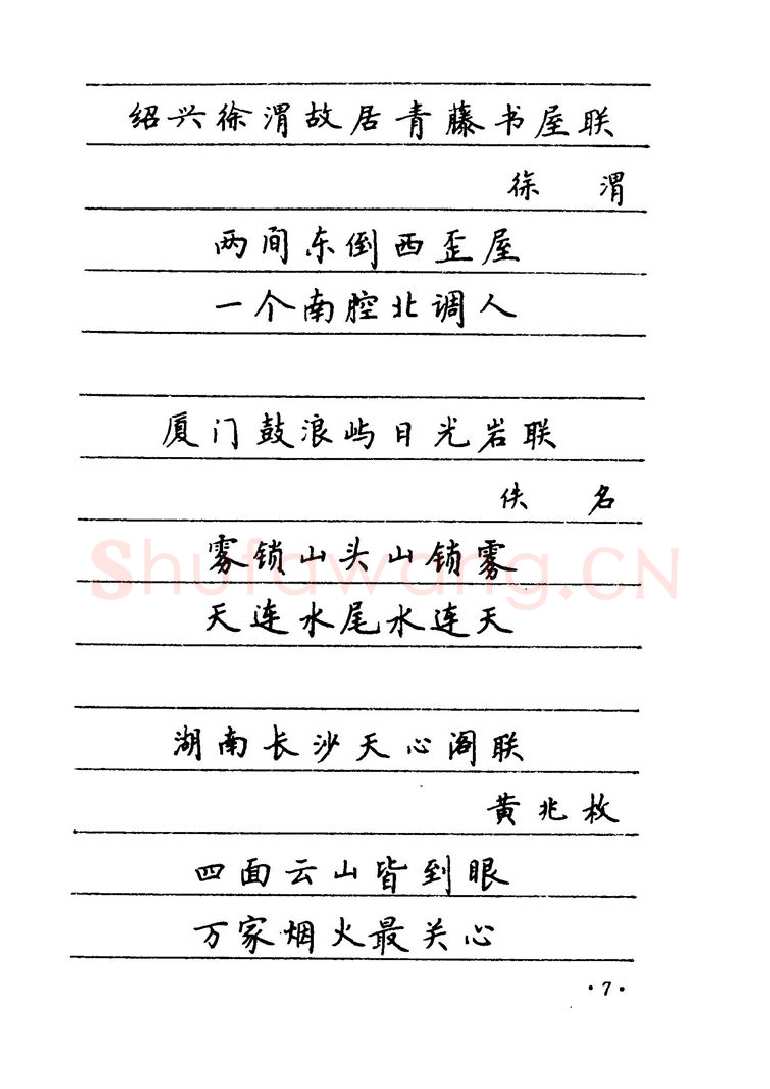 绍兴徐渭故居青藤书屋联
徐 渭
两间东倒西歪屋
一个南腔北调人
厦门鼓浪屿日光岩联
佚 名
雾锁山头山锁雾
shufawang.CN
天连水尾水连天
湖南长沙天心阁联
黄兆枚
四面云山皆到眼
万家烟火最关心
·7·